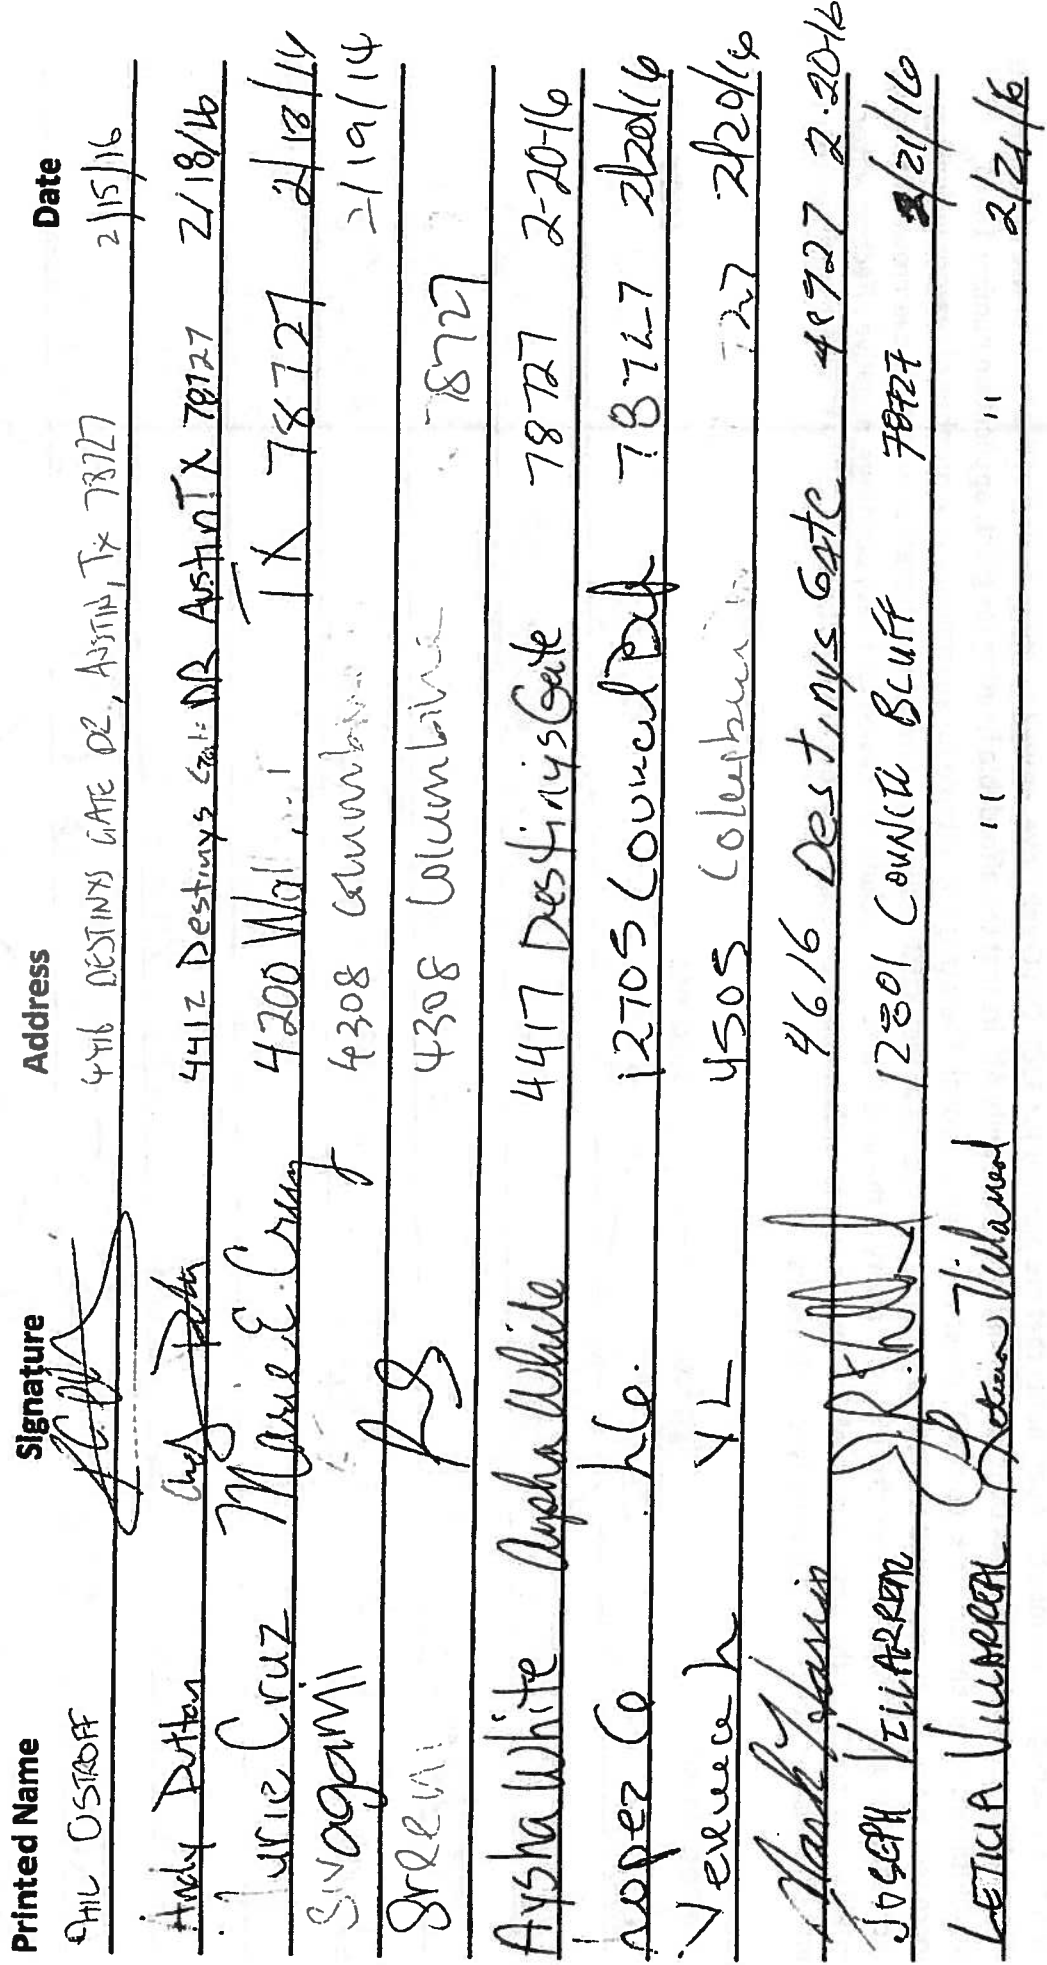 Printed Name Signature Address Date
PHIL OSTROFF 4416 DESTINYS GATE DR, AUSTIN, TX 78727 2/15/16
Andy Dutton 4412 Destinys Gate DR Austin TX 78727 2/18/16
Cruz Marie E. Cruz 4200 TX 78727 2/18/14
Sivagami 4308 Columbine 2/19/14
Sreeni 4308 Columbine 78727
Aysha White Aysha White 4417 Destinys Gate 78727 2-20-16
Lopez 12705 Council 78727 2/20/16
4505 727 2/20/16
4616 Destinys Gate 2-20-16
JOSEPH VILLARREAL 12801 COUNCIL BLUFF 78727 2/21/16
LETICIA VILLARREAL Leticia Villarreal " " 2/21/16